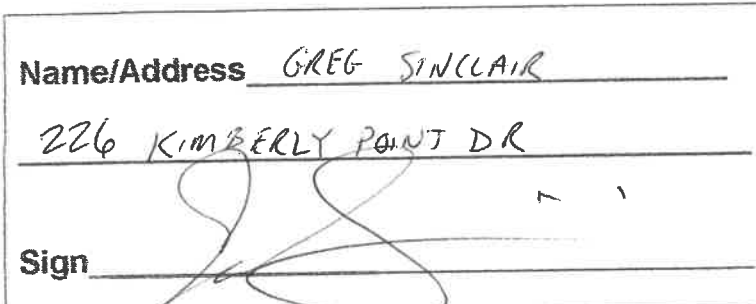 Name/Address GREG SINCLAIR
226 KIMBERLY POINT DR
Sign